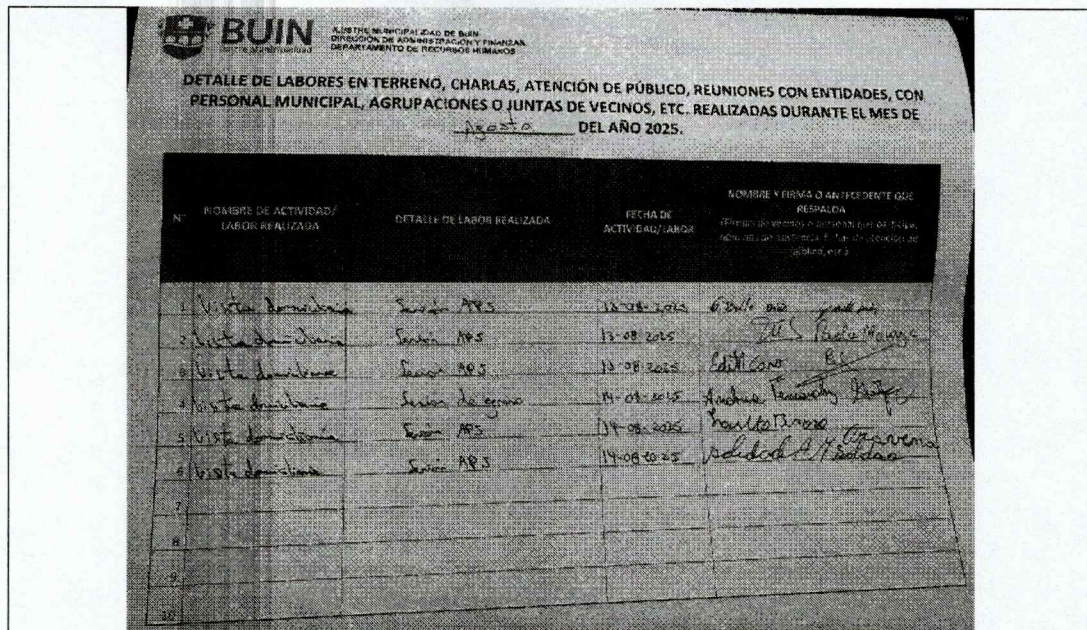 BUIN
ILUSTRE MUNICIPALIDAD DE BUIN
DIRECCIÓN DE ADMINISTRACIÓN Y FINANZAS
DEPARTAMENTO DE RECURSOS HUMANOS
DETALLE DE LABORES EN TERRENO, CHARLAS, ATENCIÓN DE PÚBLICO, REUNIONES CON ENTIDADES, CON
PERSONAL MUNICIPAL, AGRUPACIONES O JUNTAS DE VECINOS, ETC. REALIZADAS DURANTE EL MES DE
Agosto DEL AÑO 2025.
N° NOMBRE DE ACTIVIDAD/ LABOR REALIZADA DETALLE DE LABOR REALIZADA FECHA DE ACTIVIDAD/LABOR NOMBRE Y FIRMA O ANTECEDENTE QUE RESPALDA
1 Visita domiciliaria Sesión APS 13-08-2025
2 Visita domiciliaria Sesión APS 13-08-2025 Paola
3 Visita domiciliaria Sesión APS 13-08-2025 Edith Caro
4 Visita domiciliaria Sesión de egreso 14-08-2025 Andrea Fernandez
5 Visita domiciliaria Sesión APS 14-08-2025 Aravena
6 Visita domiciliaria Sesión APS 14-08-2025 Soledad
7
8
9
10